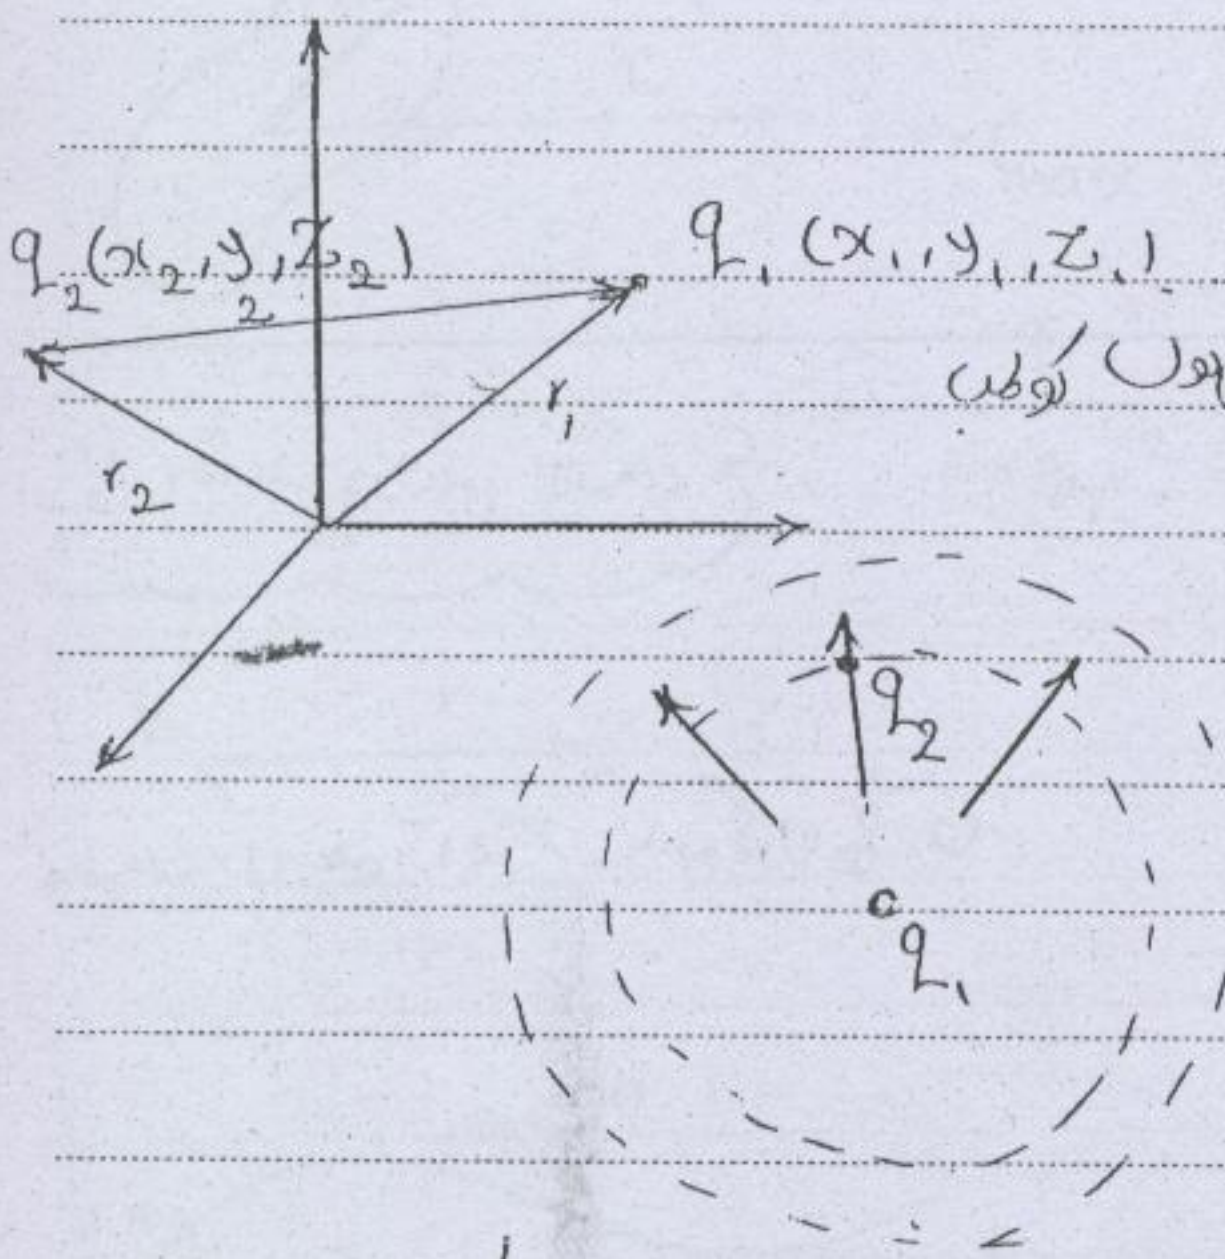 q₂(x₂, y₂, Z₂)
q₁ (x₁, y₁, Z₁)
r₁
r₂
q₂
q₁